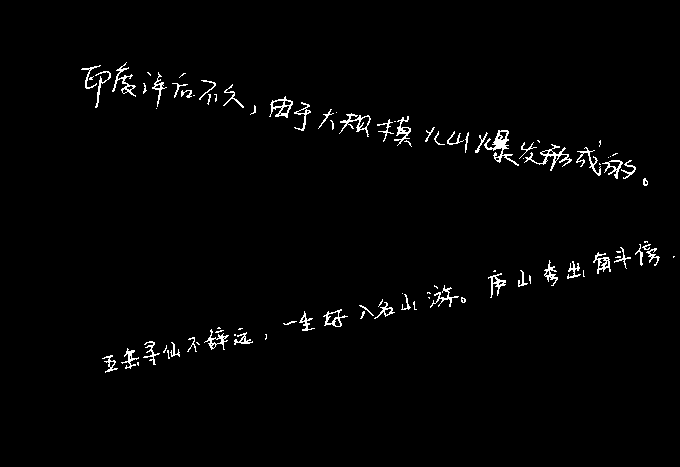 印度洋后不久,由于大规模火山爆发形成的。
五岳寻仙不辞远,一生好入名山游。庐山秀出南斗傍.